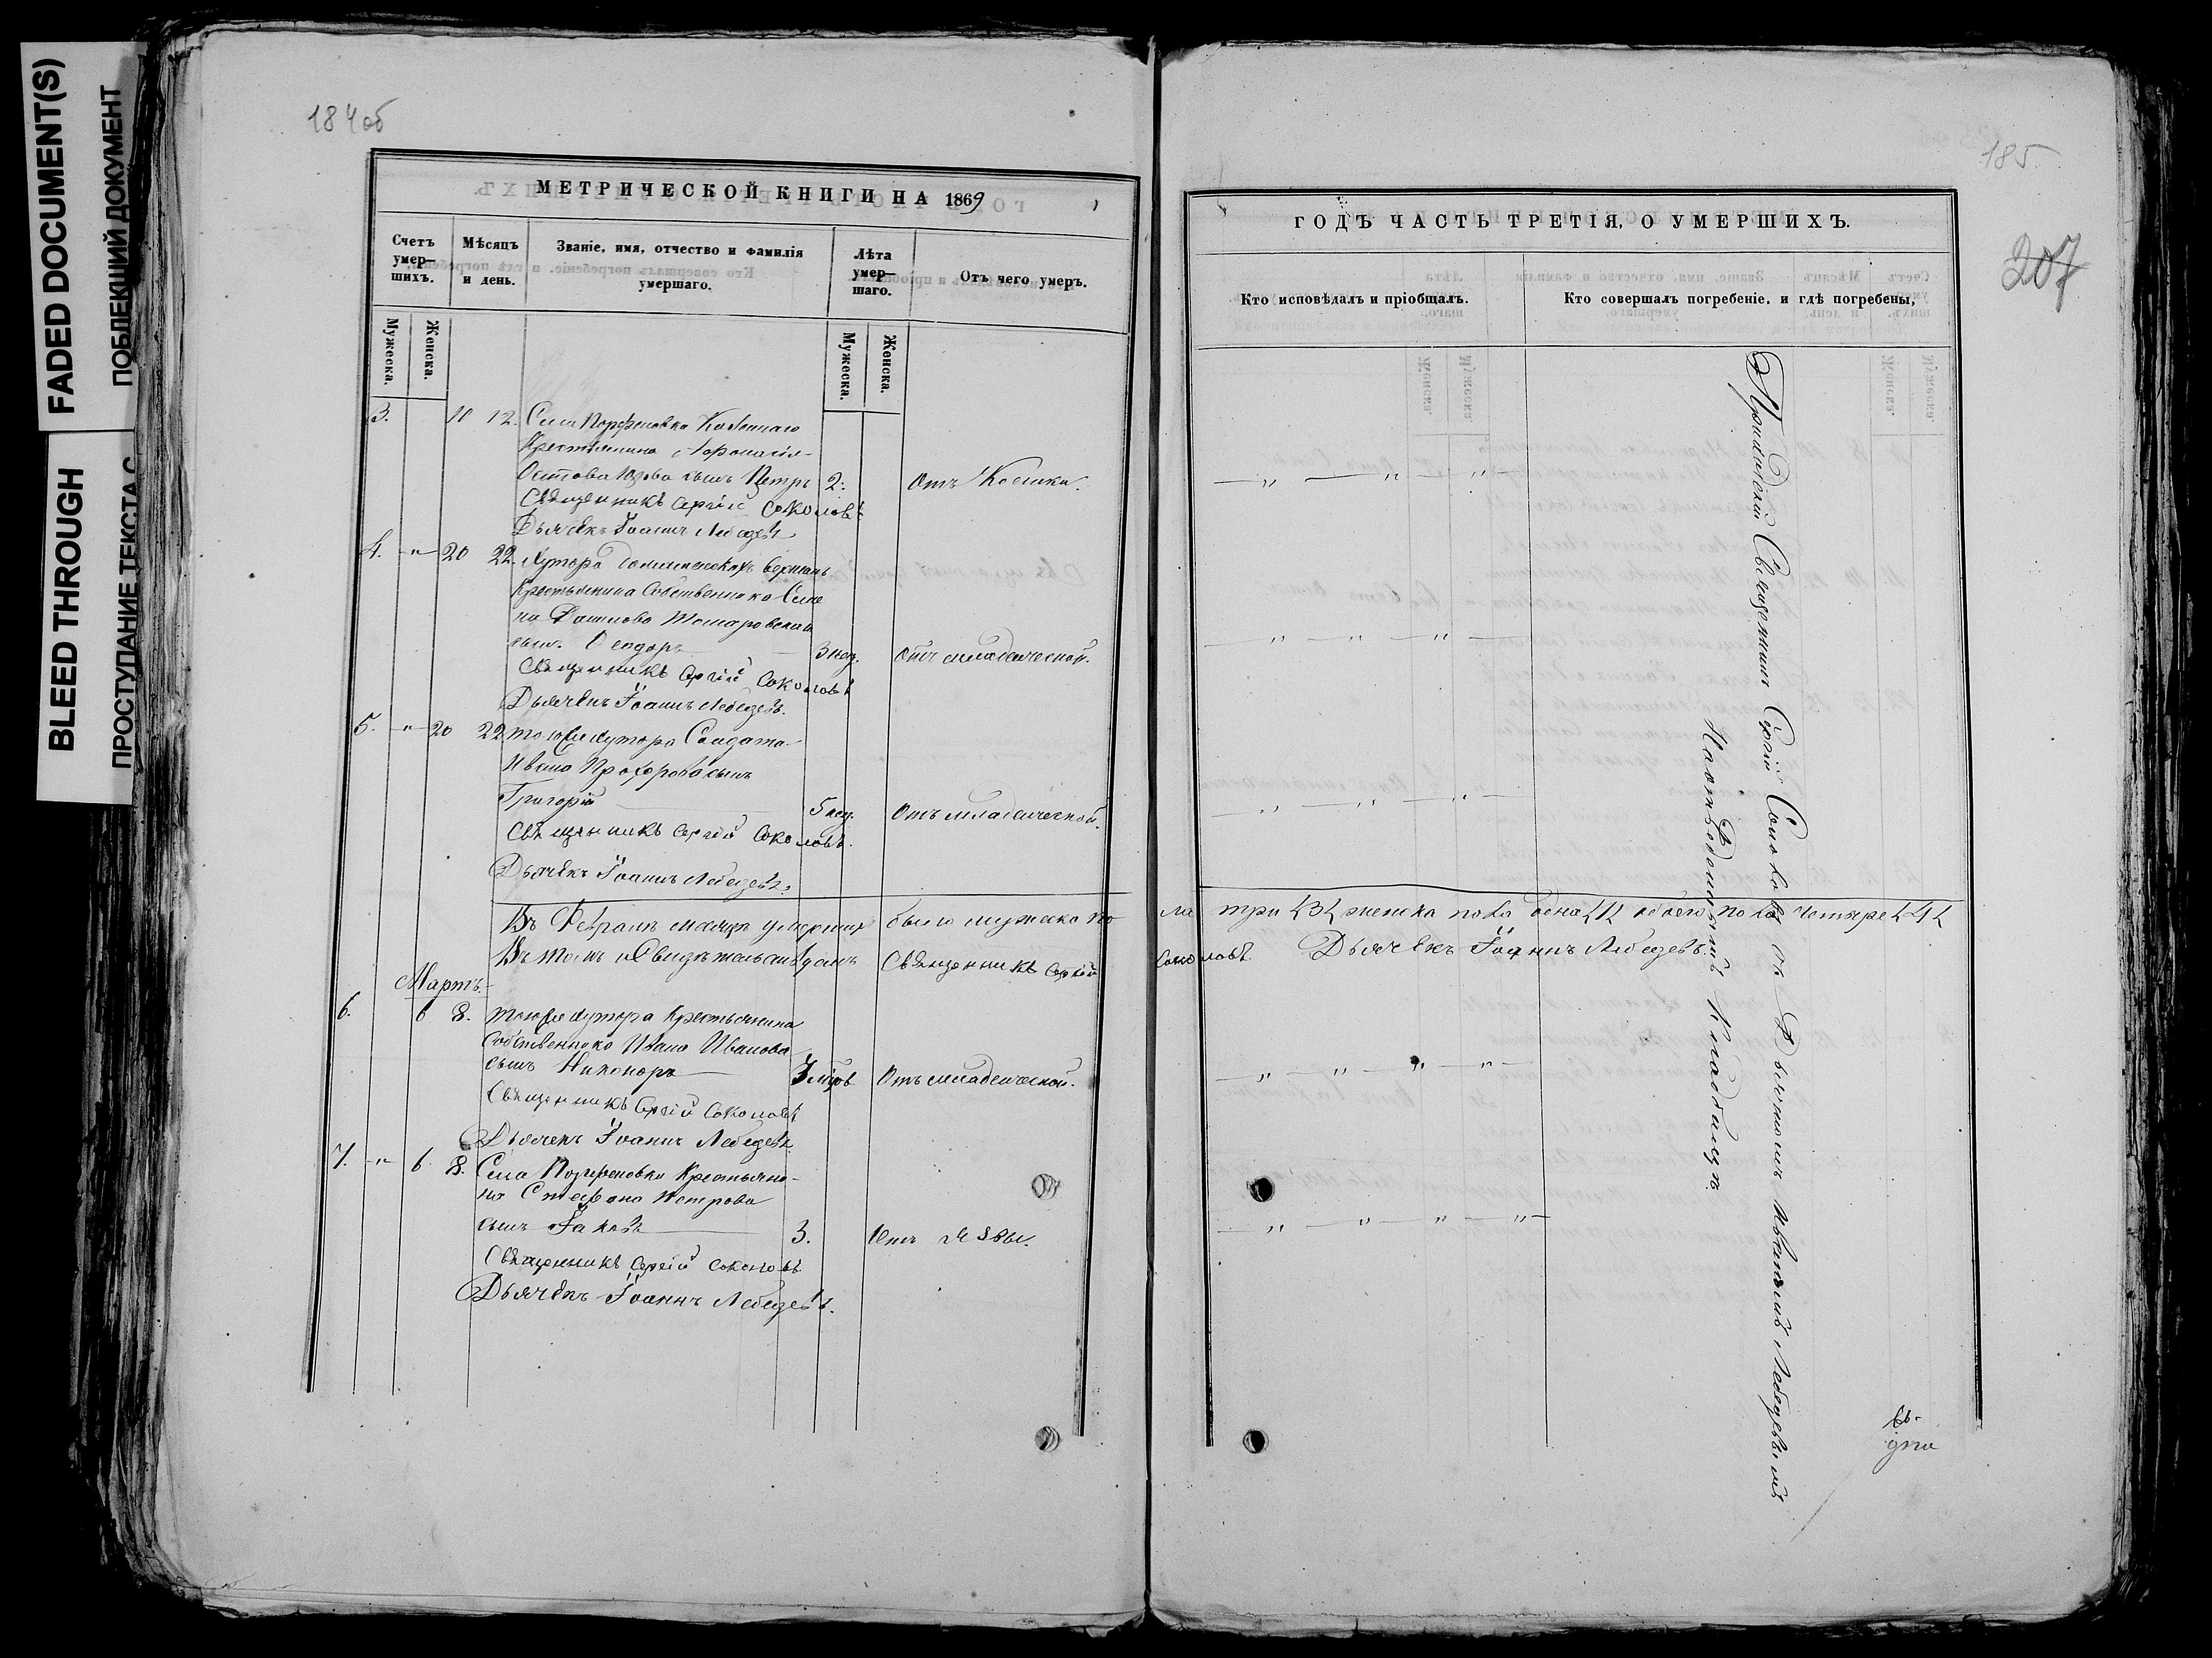 FADED DOCUMENT(S)
ПОБЛЕКШИЙ ДОКУМЕНТ
BLEED THROUGH
ПРОСТУПАНИЕ ТЕКСТА С
184об
МЕТРИЧЕСКОЙ КНИГИ НА 1869
Счетъ умер–шихъ.
Мѣсяцъ и день.
Званіе, имя, отчество и фамилія умершаго.
Лѣта умер–шаго.
Отъ чего умеръ.
Мужеска.
Женска.
Мужеска.
Женска.
3. 11 12. Села Парфеновки
Крестьянина
сынъ Петръ 2.
Священникъ Сергій Соколовъ
Дьячекъ Іоаннъ Лебедевъ
4. –"– 20 22. Хутора
Крестьянина Собственника Семе
на
сынъ Ѳеодоръ 3 нед. Отъ младенческой.
Священникъ Сергій Соколовъ
Дьячекъ Іоаннъ Лебедевъ.
5. –"– 20 22 тогоже хутора Солдата
Ивана Прохорова сынъ
Григорій 5 нед. Отъ младенческой.
Священникъ Сергій Соколовъ.
Дьячекъ Іоаннъ Лебедевъ.
Въ Февралѣ мѣсяцѣ умершихъ было мужеска по
Въ томъ и Свидѣтельствуемъ Священникъ Сергій
Мартъ.
6. 6 8. тогоже хутора Крестьянина
Собственника Ивана Иванова
сынъ Никоноръ 3 мѣсяцовъ Отъ младенческой.
Священникъ Сергій Соколовъ
Дьячекъ Іоаннъ Лебедевъ
7. –"– 6 8. Села Парфеновки Крестьяни–
на Стефана Петрова
сынъ Іаковъ 3. Отъ язвы.
Священникъ Сергій Соколовъ
Дьячекъ Іоаннъ Лебедевъ.
185
207
ГОДЪ ЧАСТЬ ТРЕТІЯ, О УМЕРШИХЪ.
Кто исповѣдалъ и пріобщалъ.
Кто совершалъ погребеніе, и гдѣ погребены,
ла три {3} женска пола одна {1} обоего пола четыре {4}
Соколовъ. Дьячекъ Іоаннъ Лебедевъ.
Приходскій Священникъ Сергій Соколовъ съ Дьячкомъ Иваномъ Лебедевымъ
На отведенномъ Кладбищѣ.